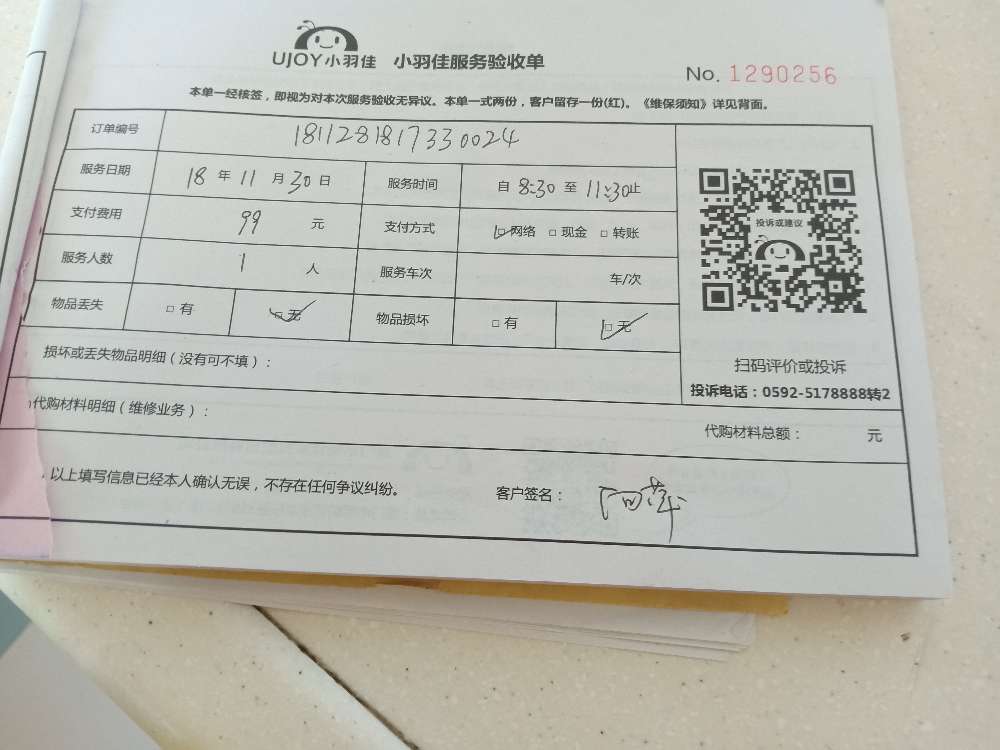 UJOY小羽佳 小羽佳服务验收单
No. 1290256
本单一经核签，即视为对本次服务验收无异议。本单一式两份，客户留存一份(红)。《维保须知》详见背面。
订单编号 1811281817330024
服务日期 18 年 11 月 30 日 服务时间 自 8:30 至 11:30 止
支付费用 99 元 支付方式 □网络 □现金 □转账
服务人数 1 人 服务车次 车/次
物品丢失 □有 □无 物品损坏 □有 □无
投诉或建议
扫码评价或投诉
投诉电话：0592-5178888转2
损坏或丢失物品明细（没有可不填）：
代购材料明细（维修业务）：
代购材料总额： 元
以上填写信息已经本人确认无误，不存在任何争议纠纷。 客户签名：